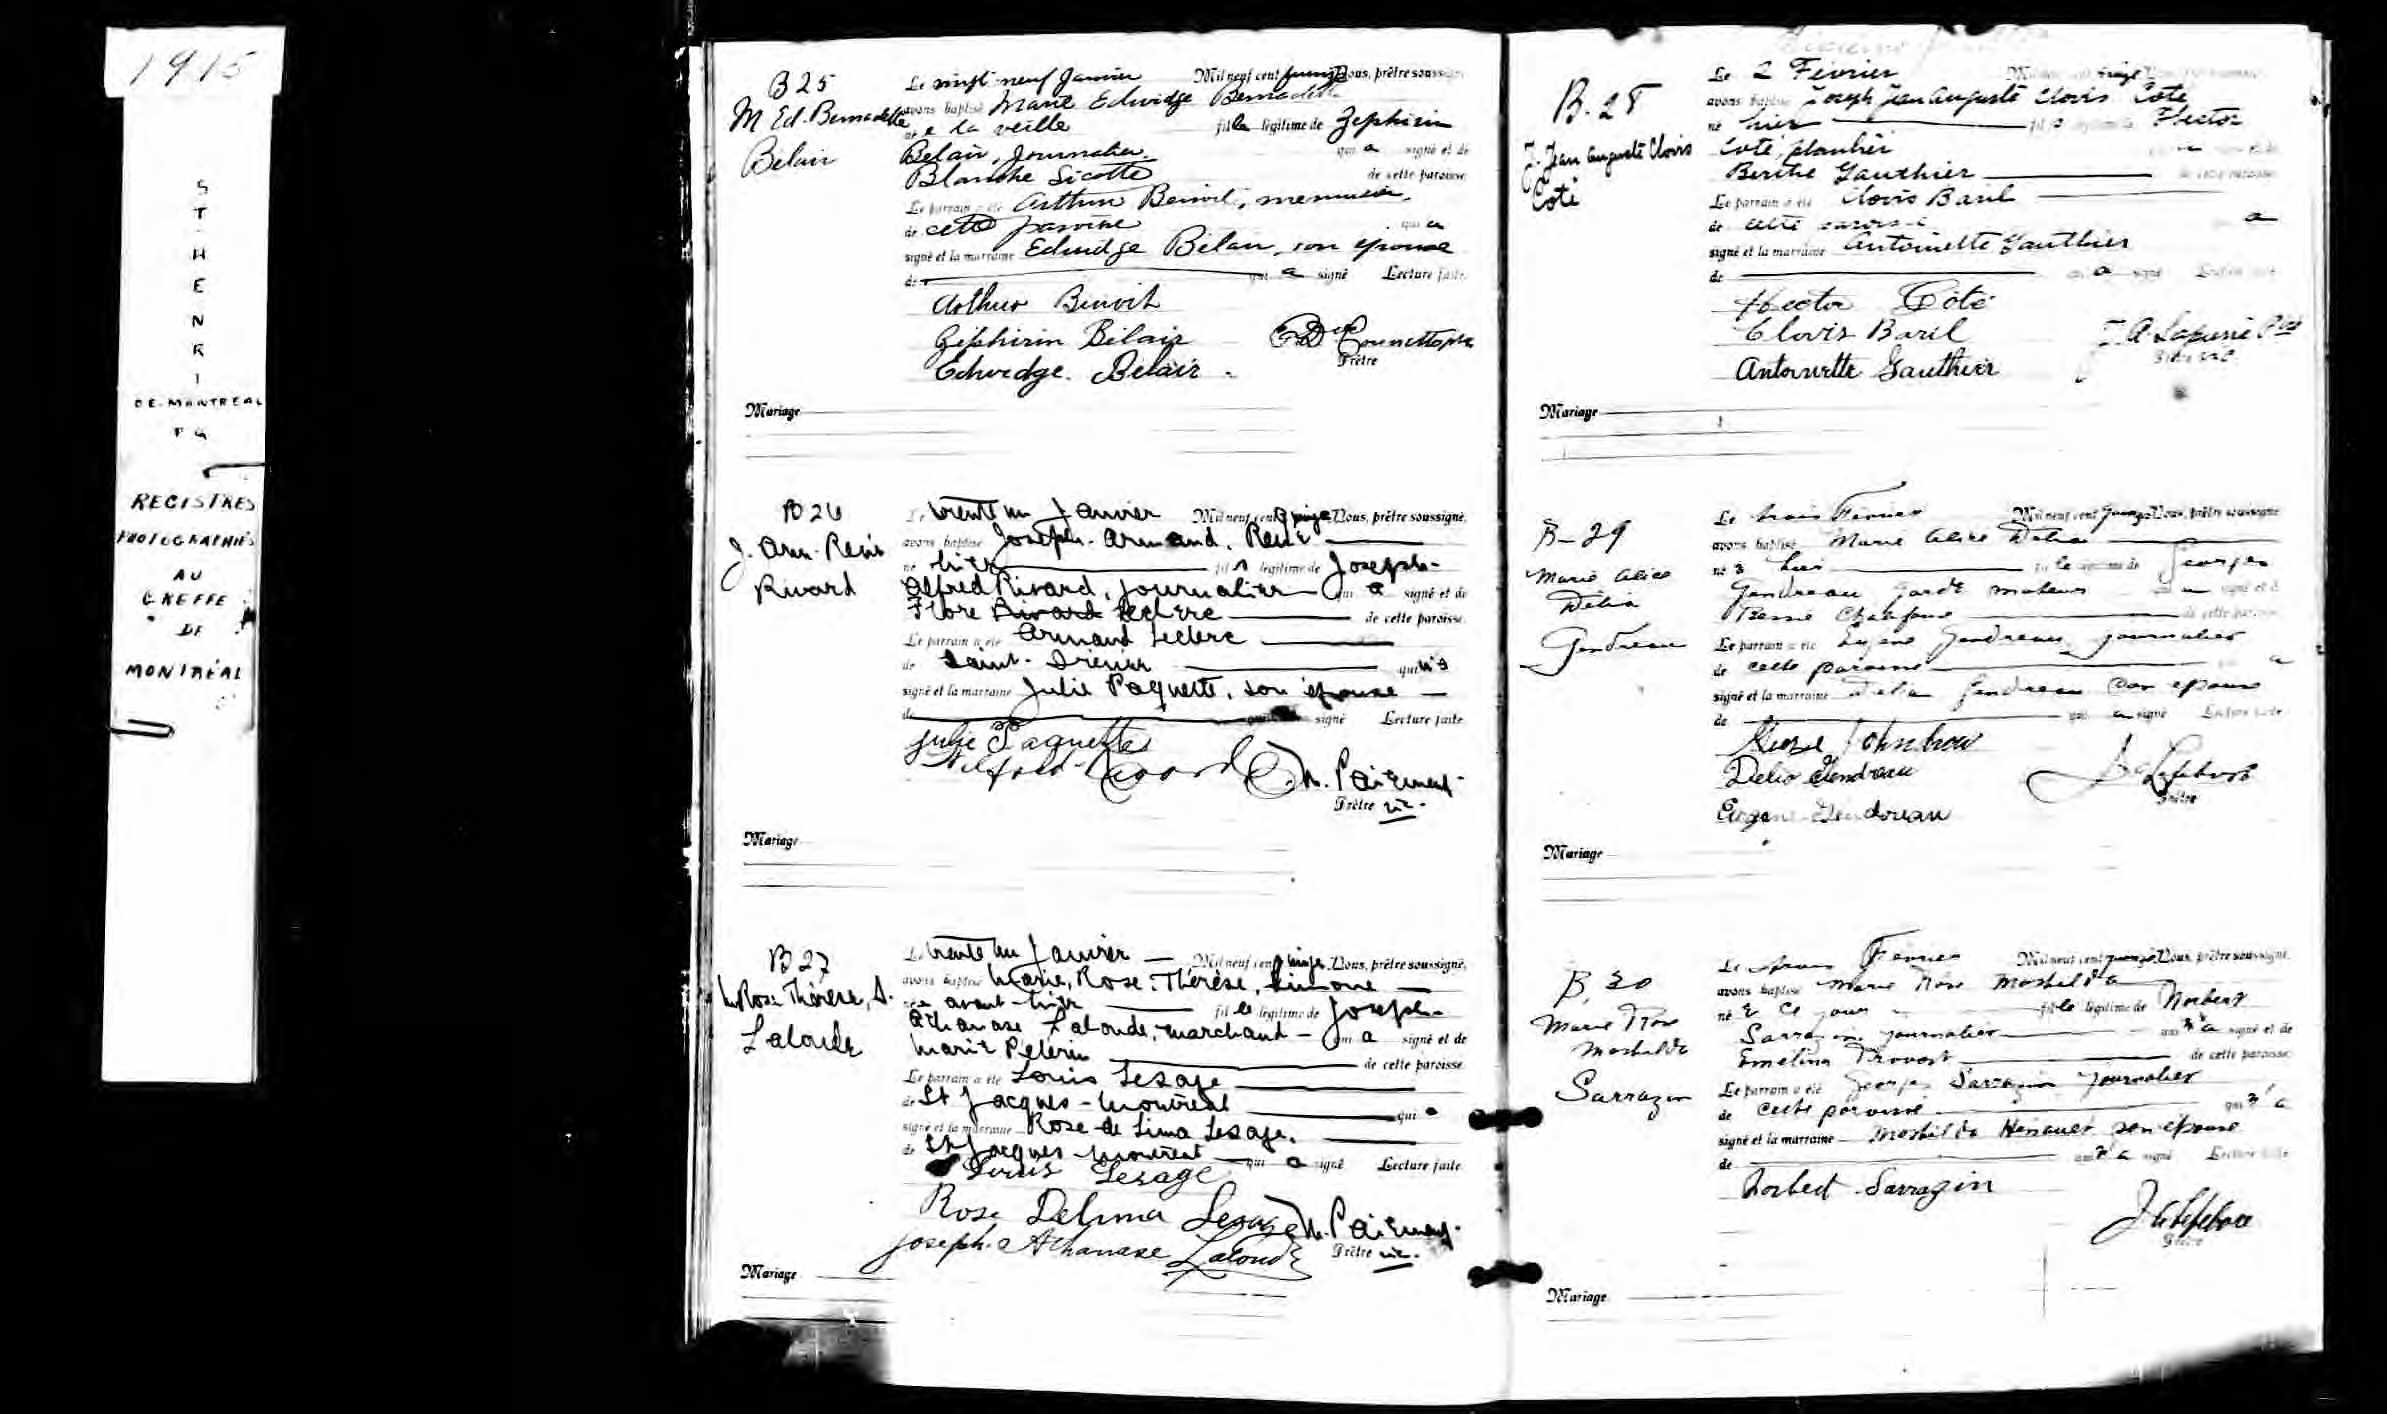 1915
ST HENRI
DE MONTREAL
P Q
REGISTRES
PHOTOGRAPHIÉS
AU
GREFFE
DE
MONTRÉAL
B 25
M Ed. Bernadette
Bélair
Le vingt-neuf Janvier Mil neuf cent quinze Nous, prêtre soussigné,
avons baptisé Marie Edwidge Bernadette
née la veille fille légitime de Zephirin
Belair, journalier qui a signé et de
Blanche Sicotte de cette paroisse.
Le parrain a été Arthur Benoit, menuisier,
de cette paroisse qui a
signé et la marraine Edwidge Bélair, son épouse
de qui a signé Lecture faite.
Arthur Benoit
Zéphirin Bélair
Edwidge Belair
Prêtre
Mariage
B 26
J. Arm. René
Rivard
Le trente un Janvier Mil neuf cent quinze Nous, prêtre soussigné,
avons baptisé Joseph-Armand, René
né hier fils légitime de Joseph-
Alfred Rivard, journalier qui a signé et de
Flore Rivard Leclerc de cette paroisse.
Le parrain a été Armand Leclerc
de Saint- qui n'a
signé et la marraine Julie Paquette, son épouse
de signé Lecture faite.
Julie Paquette
Prêtre vic.
Mariage
B 27
M. Rose Thérèse, S.
Lalonde
Le trente un Janvier Mil neuf cent quinze Nous, prêtre soussigné,
avons baptisé Marie, Rose, Thérèse, Simone
née avant-hier fille légitime de Joseph-
Athanase Lalonde, marchand qui a signé et de
Marie Pelerin de cette paroisse.
Le parrain a été Louis Lesage
de St Jacques-Montréal qui a
signé et la marraine Rose de Lima Lesage,
de St Jacques-Montréal qui a signé Lecture faite
Louis Lesage
Rose Delima Lesage
Joseph Athanase Lalonde
Prêtre vic.
Mariage
B. 28
J. Jean Auguste Clovis
Coté
Le 2 Février
avons baptisé Joseph Jean Auguste Clovis Coté
né hier Hector
Coté, plombier
Berthe Gauthier
Le parrain a été Clovis Baril
de cette paroisse a
signé et la marraine Antoinette Gauthier
de a signé
Hector Côté
Clovis Baril
Antoinette Gauthier
Mariage
B-29
Marie Alice
Délia
Gendreau
Le trois Février Mil neuf cent quinze Nous, prêtre soussigné
avons baptisé Marie Alice Délia
née hier fille légitime de Georges
Gendreau garde moteur signé et de
de cette paroisse
Le parrain a été Eugène Gendreau journalier
de cette paroisse a
signé et la marraine Délia Gendreau son épouse
de qui a signé Lecture faite
Delia Gendreau
Prêtre
Mariage
B. 30
Marie Rose
Mathilda
Sarrazin
Le trois Février Mil neuf cent quinze Nous, prêtre soussigné,
avons baptisé Marie Rose Mathilda
née ce jour fille légitime de Norbert
Sarrazin journalier qui n'a signé et de
Emelina Provost de cette paroisse.
Le parrain a été Georges Sarrazin journalier
de cette paroisse qui n'a
signé et la marraine son épouse
de qui n'a signé Lecture faite
Norbert Sarrazin
J Lefebvre
Prêtre
Mariage